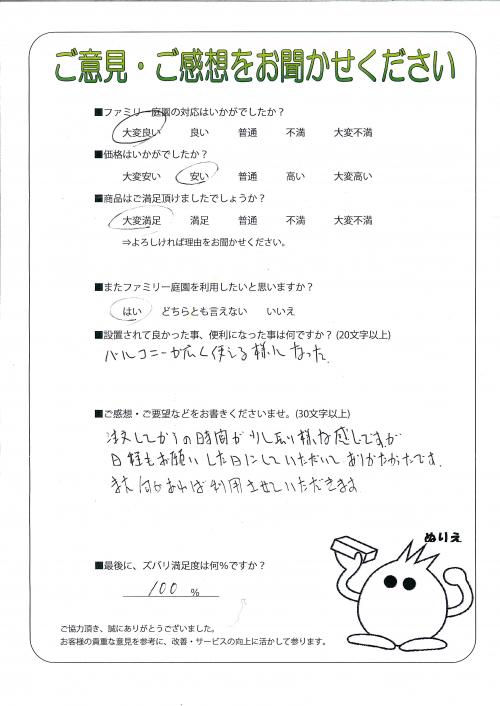 ご意見・ご感想をお聞かせください
■ファミリー庭園の対応はいかがでしたか？
大変良い 良い 普通 不満 大変不満
■価格はいかがでしたか？
大変安い 安い 普通 高い 大変高い
■商品はご満足頂けましたでしょうか？
大変満足 満足 普通 不満 大変不満
⇒よろしければ理由をお聞かせください。
■またファミリー庭園を利用したいと思いますか？
はい どちらとも言えない いいえ
■設置されて良かった事、便利になった事は何ですか？(20文字以上)
バルコニーが広く使える様になった。
■ご感想・ご要望などをお書きくださいませ。(30文字以上)
注文してからの時間が少し長い様な感じですが
日程もお願いした日にしていただいてありがたかたです。
また何かあれば利用させていただきます
ぬりえ
■最後に、ズバリ満足度は何%ですか？
100 %
ご協力頂き、誠にありがとうございました。
お客様の貴重な意見を参考に、改善・サービスの向上に活かして参ります。